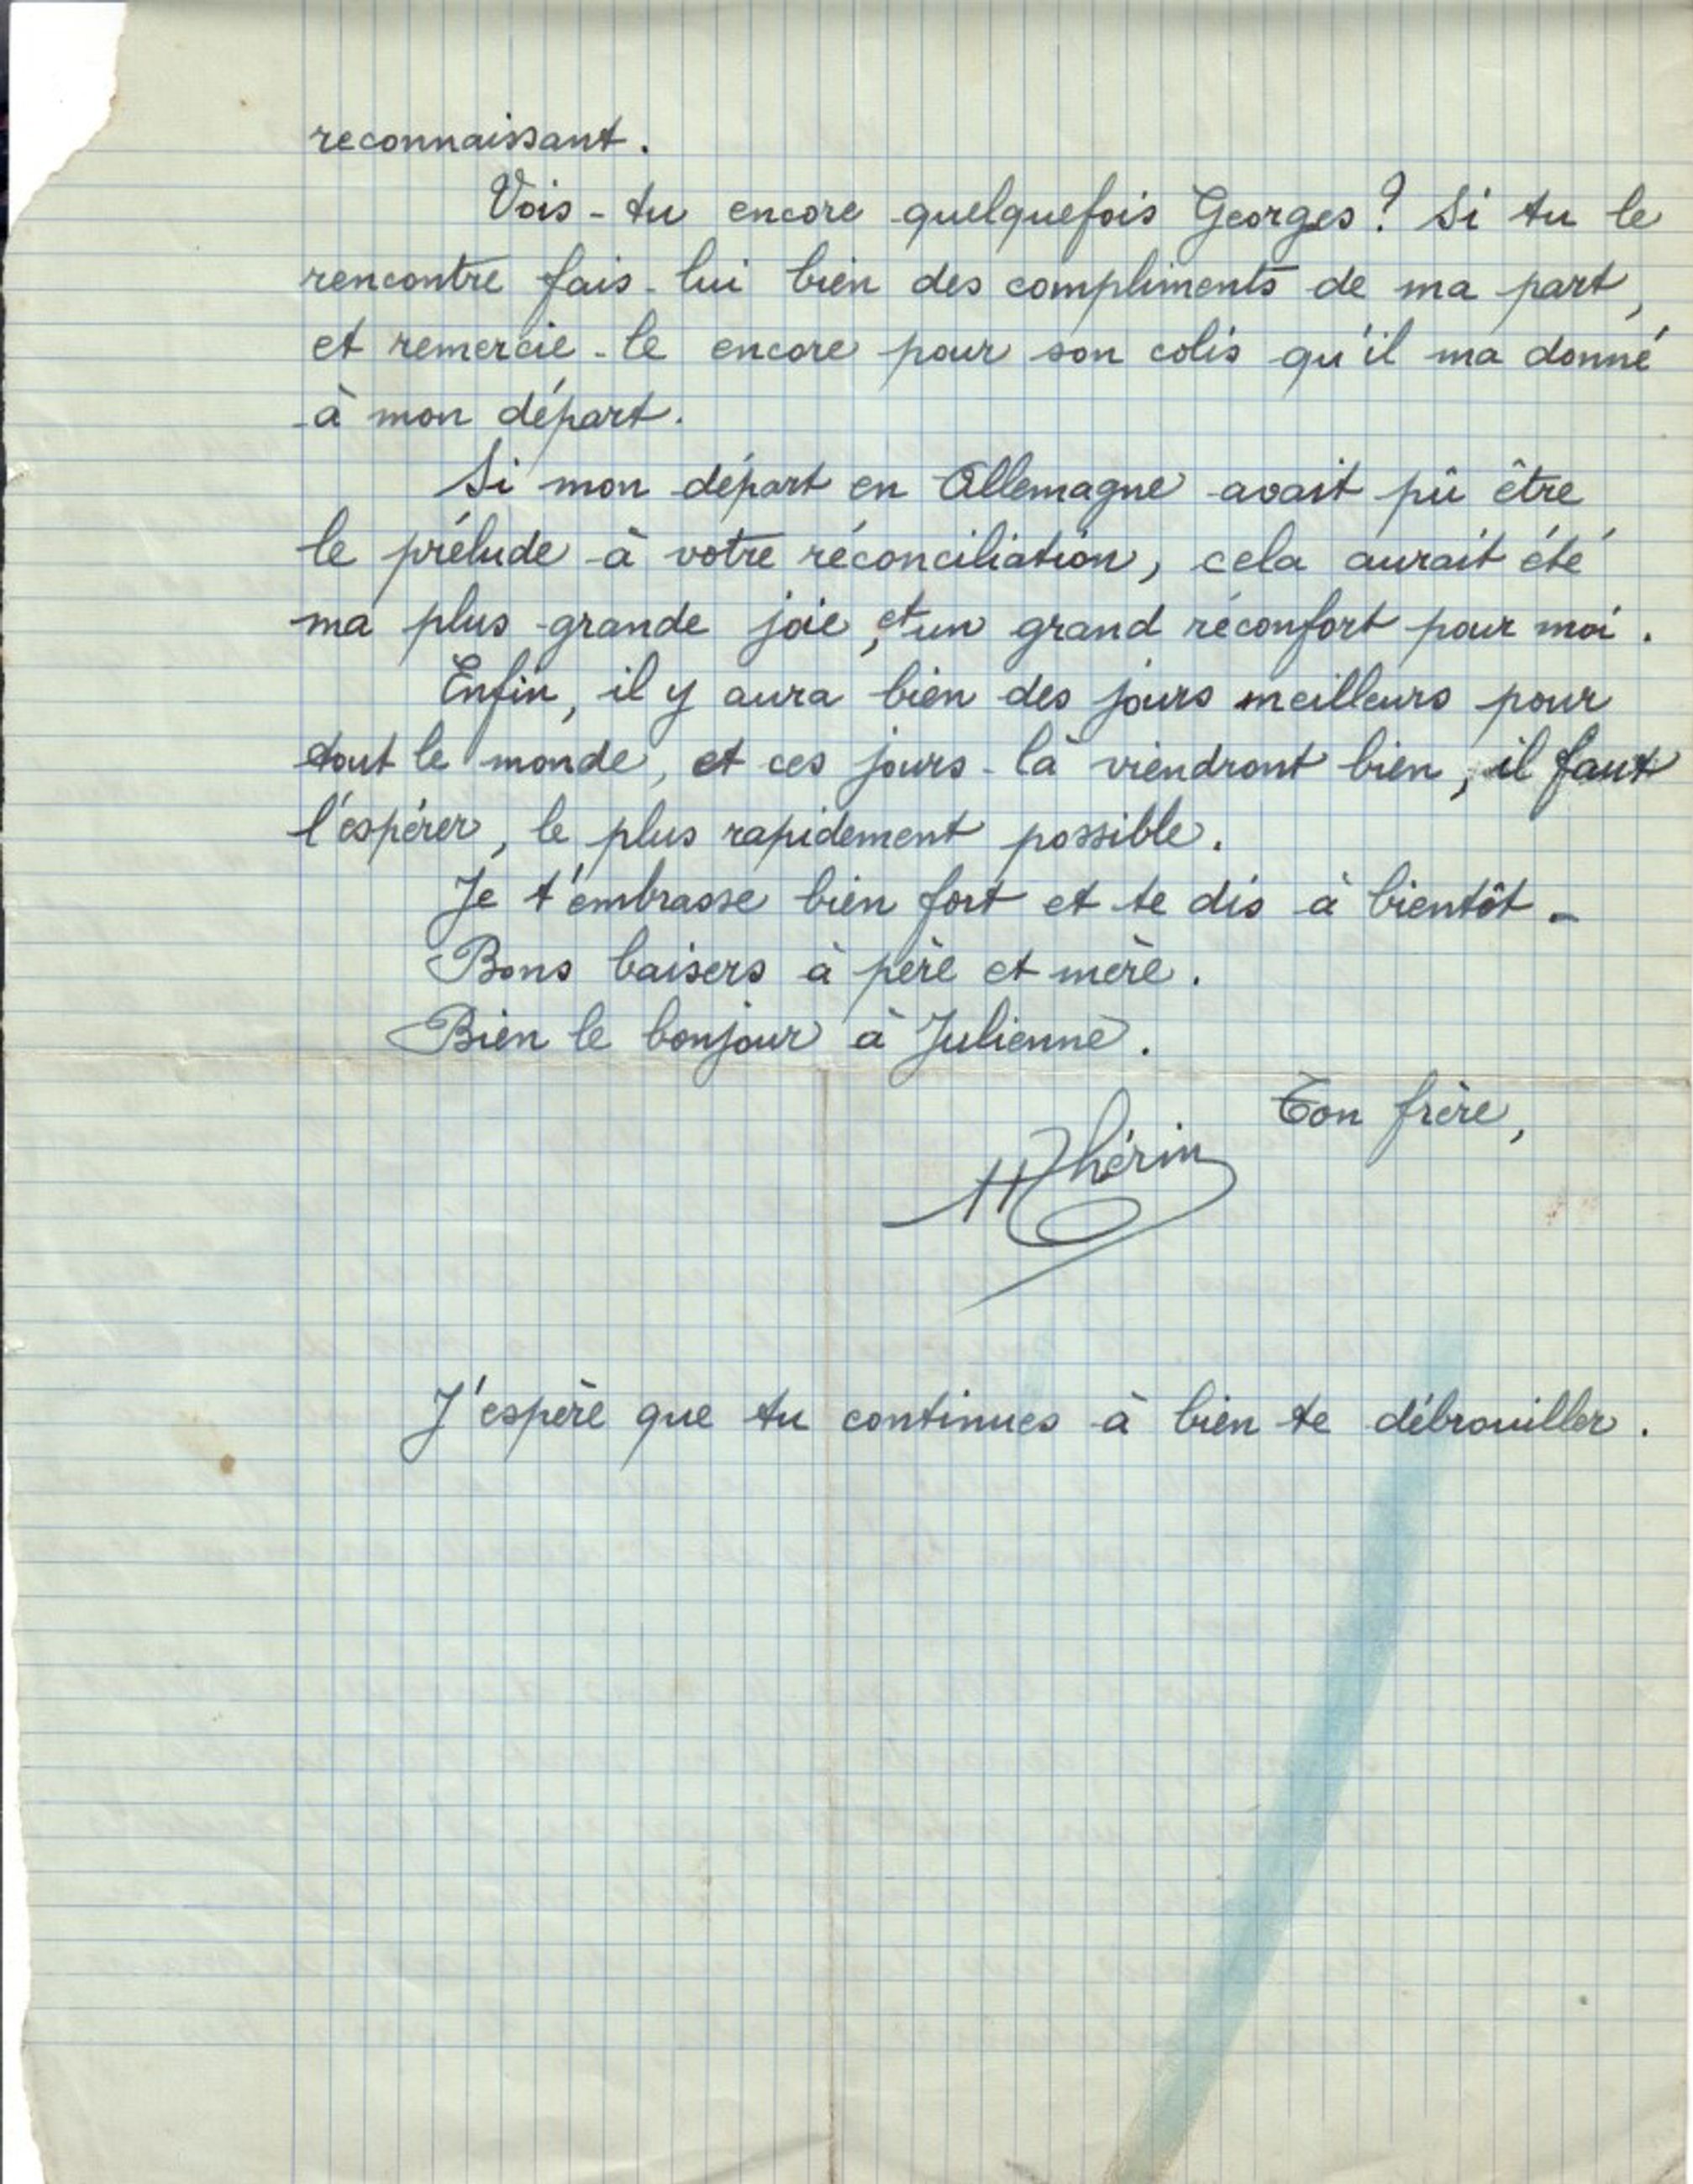 reconnaissant.
Vois-tu encore quelquefois Georges? Si tu le
rencontre fais-lui bien des compliments de ma part,
et remercie-le encore pour son colis qu'il ma donné
à mon départ.
Si mon départ en Allemagne avait pû être
le prélude à votre réconciliation, cela aurait été
ma plus grande joie, et un grand réconfort pour moi.
Enfin, il y aura bien des jours meilleurs pour
tout le monde, et ces jours-là viendront bien, il faut
l'espérer, le plus rapidement possible.
Je t'embrasse bien fort et te dis à bientôt -
Bons baisers à père et mère.
Bien le bonjour à Julienne.
Ton frère,
HThérin
J'espère que tu continues à bien te débrouiller.